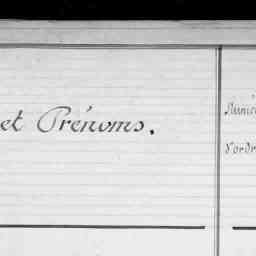 et Prénoms.
Numé
d'ordr